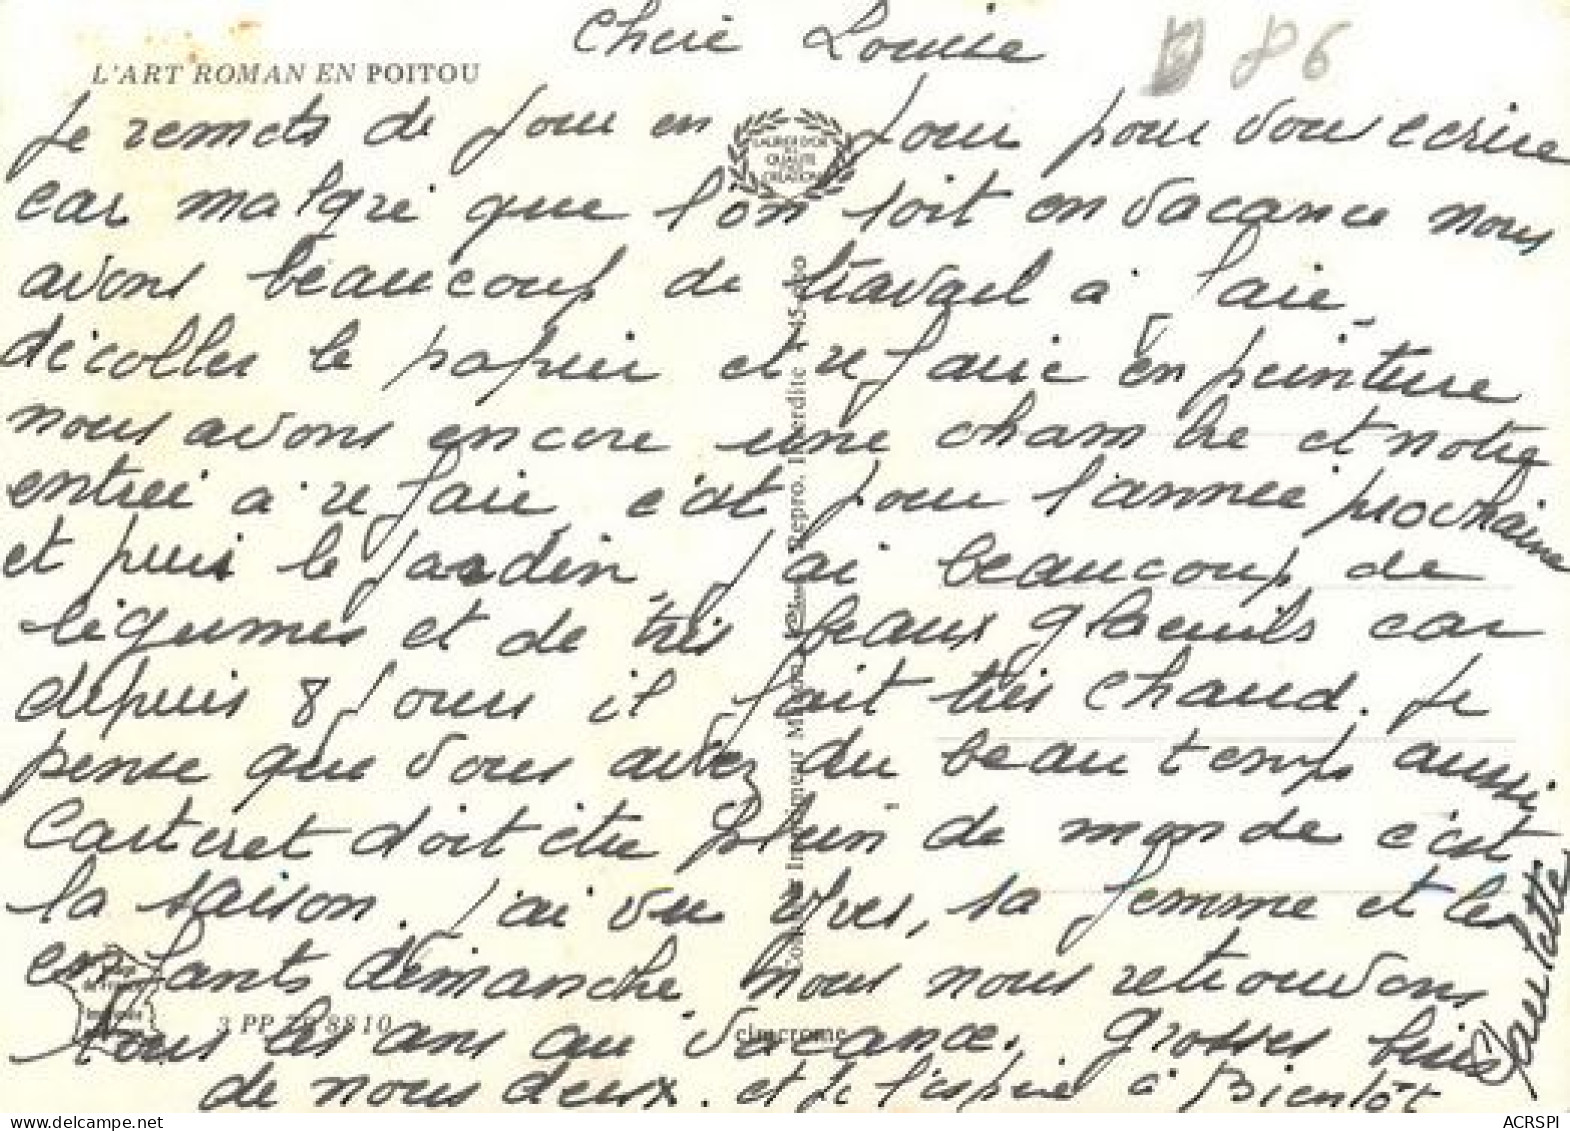 Cherie Louise
86
L'ART ROMAN EN POITOU
Je remets de jour en jour pour vous ecrire
LAURIER D'OR
QUALITÉ
CREATION
car malgré que l'on soit en vacance nous
avons beaucoup de travail à faire.
décoller le papier et refaire en peinture
nous avons encore une chambre et notre
entrée à refaire, c'est pour l'année prochaine
et puis le jardin, j'ai beaucoup de
légumes et de très beaux glaeuils car
depuis 8 jours il fait très chaud. Je
pense que vous avez du beau temps aussi
Carteret doit être plein de monde c'est
la saison. J'ai vu Yves, sa femme et les
enfants dimanche, nous nous retrouvons
tous les ans au vacance. Grosses bises
de nous deux. et je l'espère à Bientôt
Paulette
3 PP 8810
cimcrome
Repro. Interdite
Imprimeur
ACRSPI